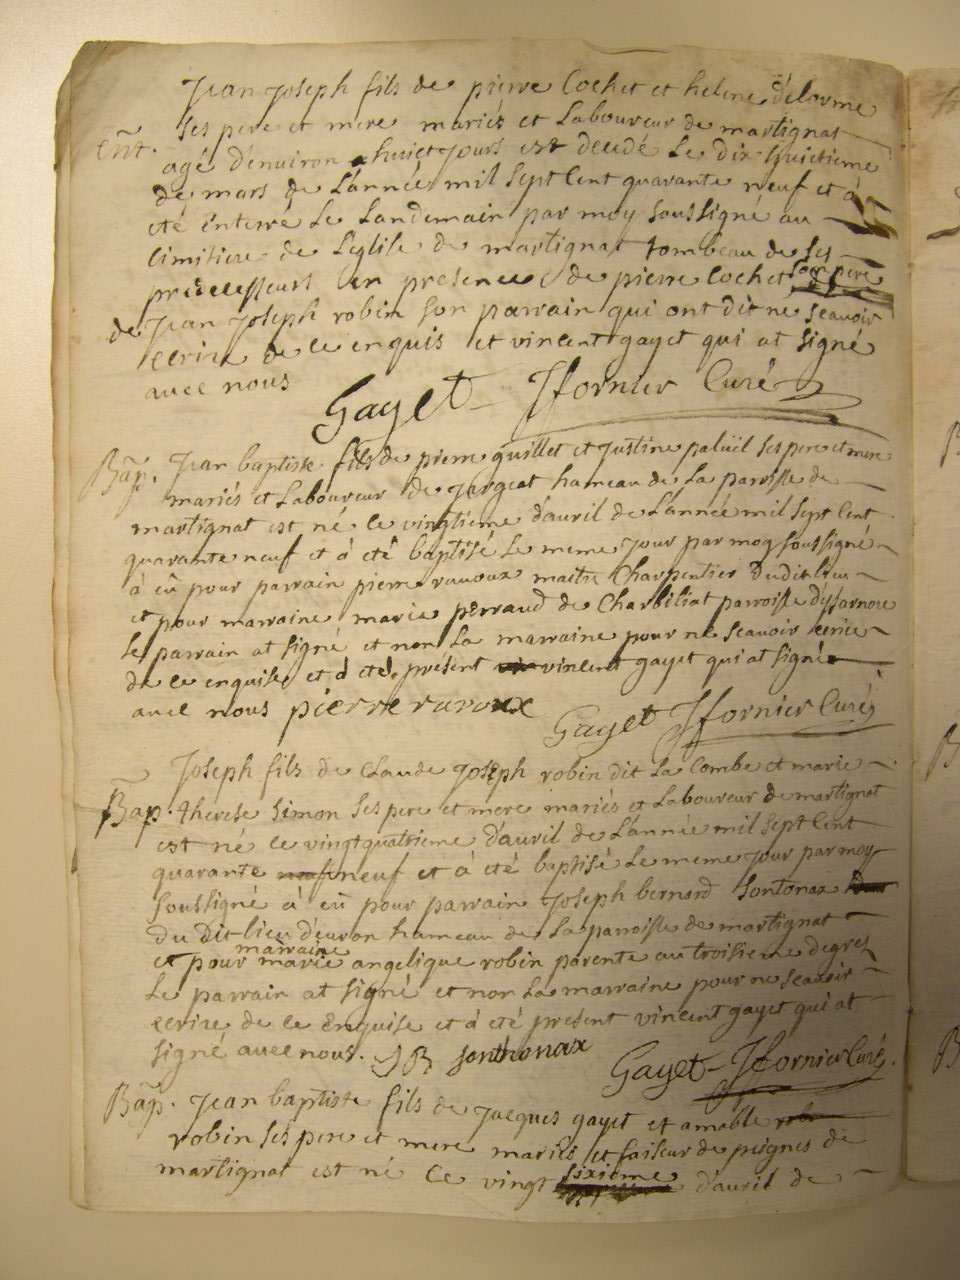 Jean joseph fils de pierre Cochet et helene délorme
ses pere et mere mariés et Laboureur de martignat
Ent.
agé d'environ huict jours est decdé le dix huictieme
de mars de L'année mil sept Cent quarante neuf et á
eté Enterré Le Landemain par moy soussigné au
Cimitiere de L'eglise de martignat tombeau de ses
predecesseurs en presence de pierre Cochet son pere
de Jean joseph robin son parrain qui ont dit ne scavoir
ecrire de ce enquis et vincent gayet qui at signé
avec nous
Gayet Jfornier Curé
Bap. Jean baptiste fils de pierre guillet et justine ses pere et mere
mariés et Laboureur de jargeat hameau de La parroisse de
martignat est né le vingtieme d'avril de L'année mil sept Cent
quarante neuf et á eté baptisé Le meme jour par moy soussigné
á eû pour parrain pierre ravoux maitre Charpentier dudit lieu
et pour marraine marie perraud de Charbiliat parroisse dysarnore
Le parrain at signé et non La marraine pour ne scavoir ecrire
de ce enquise et á eté présent vincent gayet qui at signé
avec nous pierre ravoux
Gayet Jfornier Curé
Joseph fils de Claude joseph robin dit La Combe et marie
Bap. therese simon ses pere et mere mariés et Laboureur de martignat
est né le vingtquatrieme d'avril de L'année mil sept Cent
quarante neuf et á eté baptisé Le meme jour par moy
soussigné á eû pour parrain joseph bernard sontonax
du dit lieu d'evron hameau de La parroisse de martignat
et pour marraine marie angelique robin parente au troisieme degres
Le parrain at signé et non La marraine pour ne scavoir
ecrire de ce Enquise et á été present vincent gayet qui at
signé avec nous. JB sonthonax
Gayet Jfornier Curé.
Bap. Jean baptiste fils de jacques gayet et amable
robin ses pere et mere mariés et faiseur de peignes de
martignat est né Le vingt sixieme d'avril de